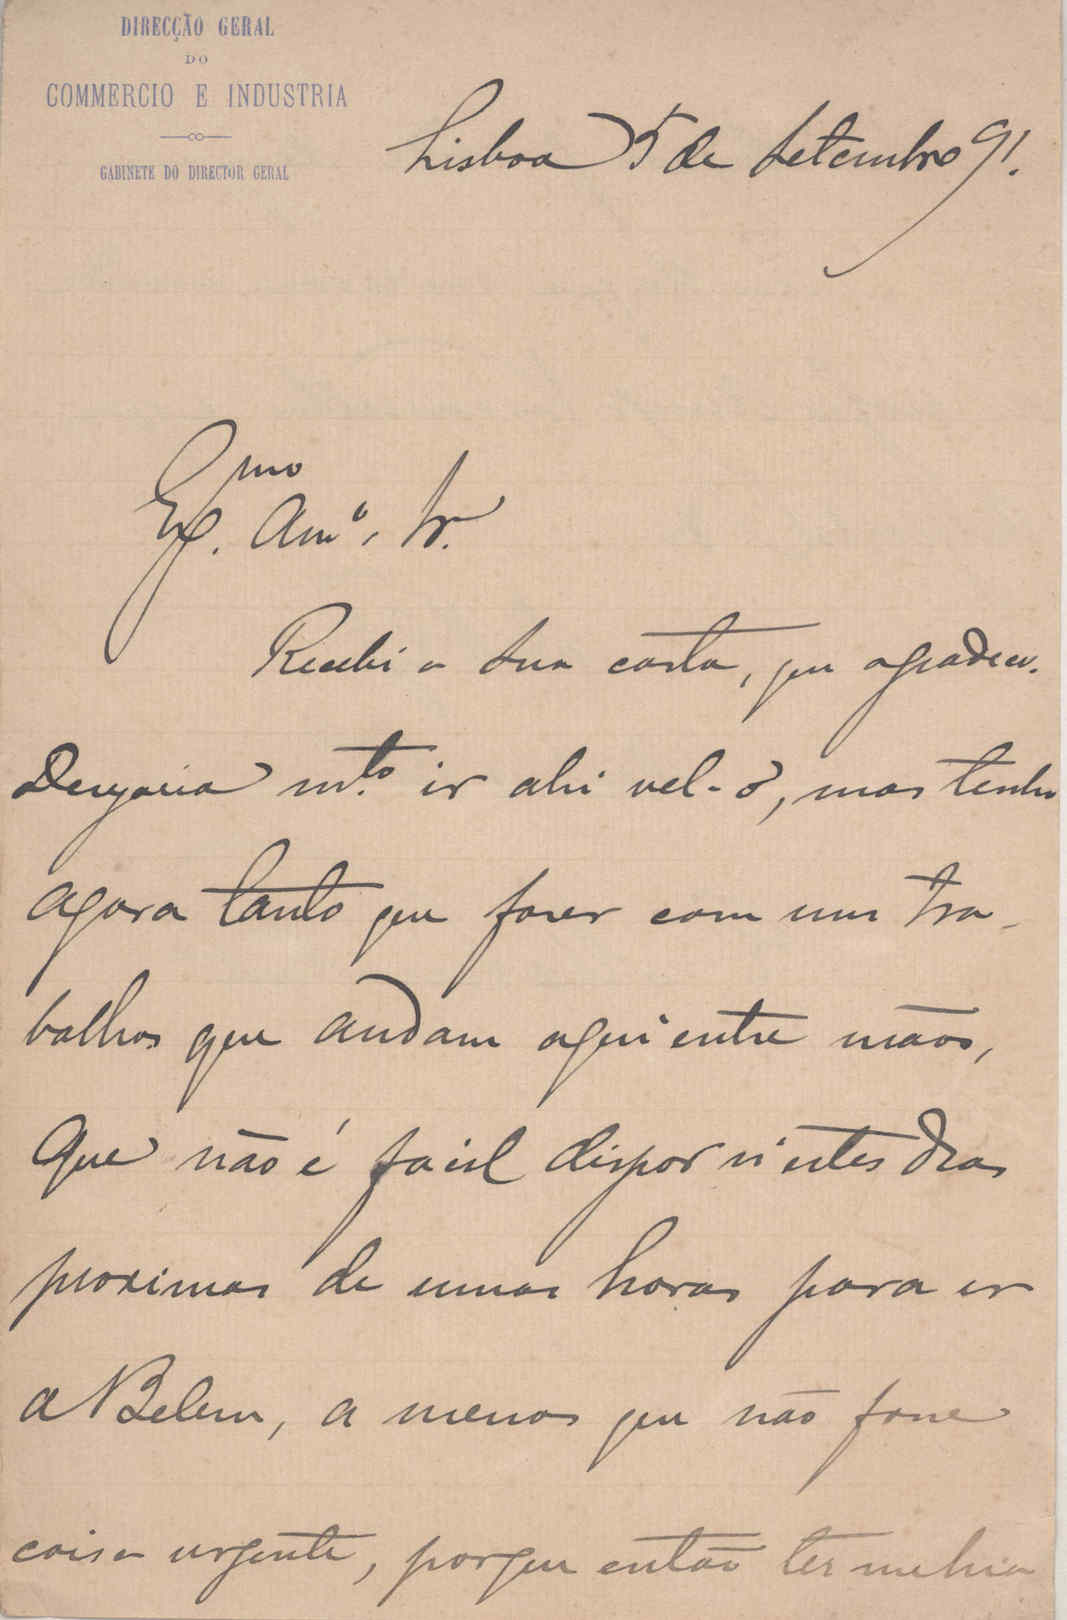 DIRECÇÃO GERAL
DO
COMMERCIO E INDUSTRIA
GABINETE DO DIRECTOR GERAL
Lisboa 5 de Setembro 91.
Exmo. Amº, Sr.
Recebi a sua carta, que agradeço.
Desejaria mto. ir ahi vel-o, mas tenho
agora tanto que fazer com uns tra-
balhos que andam aqui entre mãos,
que não é facil dispor n'estes dias
proximos de umas horas para ir
a Belem, a menos que não fosse
coisa urgente, porque então ter me hia